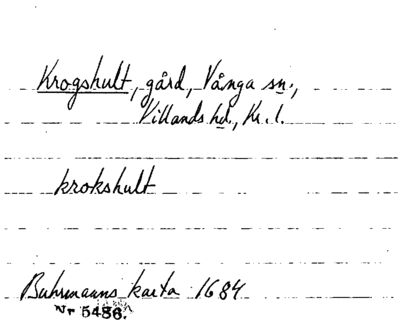 Krogshult, gård, Vånga sn.,
Villands hd., Kr. l.
krokshult
Buhrmanns karta 1684
Nr 5486.